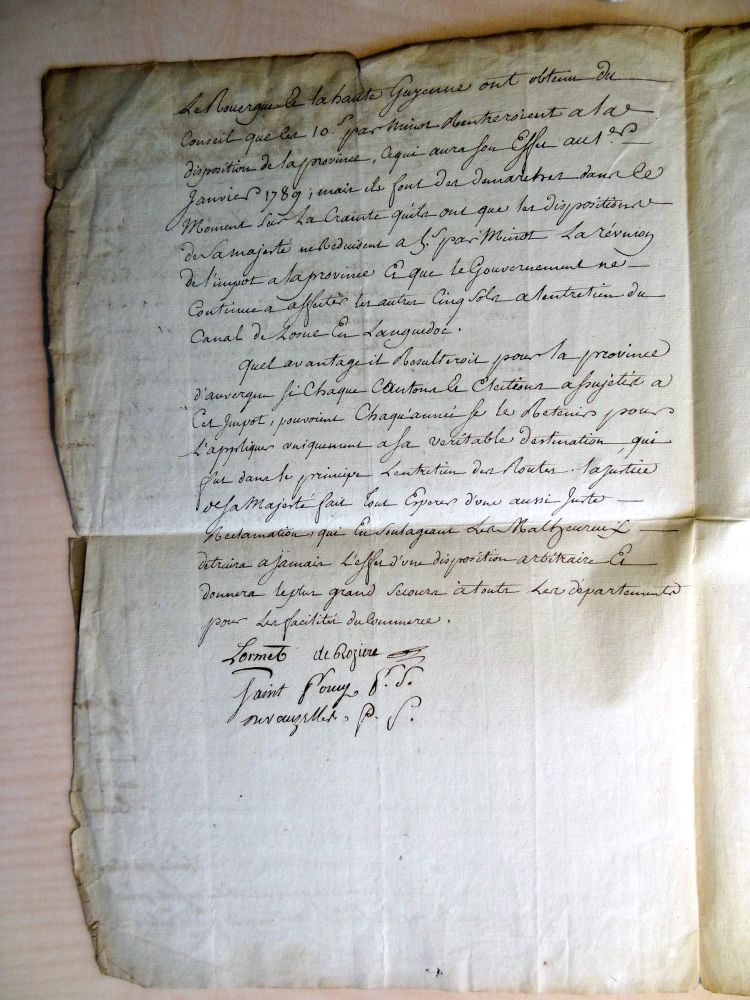 Le Rouergue Et la haute Guyenne ont obtenu du
Conseil que les 10.s par Minot Rentreroient a la
disposition de la province, cequi aura son Effet au 1.er
Janvier 1789; mais ils font des demarches dans ce
Moment sur la Crainte qu'ils ont que les dispositions
de Sa majesté ne Reduisent a 5.s par Minot La réunion
de l'impot a la province Et que le Gouvernement ne
Continue a affecter les autres Cinq Sols a l'entretien du
Canal de En Languedoc.
Quel avantage il Resulteroit pour la province
d'auvergne si Chaque Cantons Et Elections assujetis a
Cet Impot, pouvoient Chaqu'année se le Retenir pour
L'appliquer uniquement a sa veritable destination, qui
fut dans le principe L'entretien des Routes. la justice
de Sa Majesté fait tout Esperer d'une aussi Juste
Reclamation, qui En Soulageant Les Malheureux
detruira a jamais L'effet d'une disposition arbitraire Et
donnera le plus grand Secours à touts Les départements
pour Les facilités du Commerce.
Lormet de Roziere
Saint P. S.
P. S.